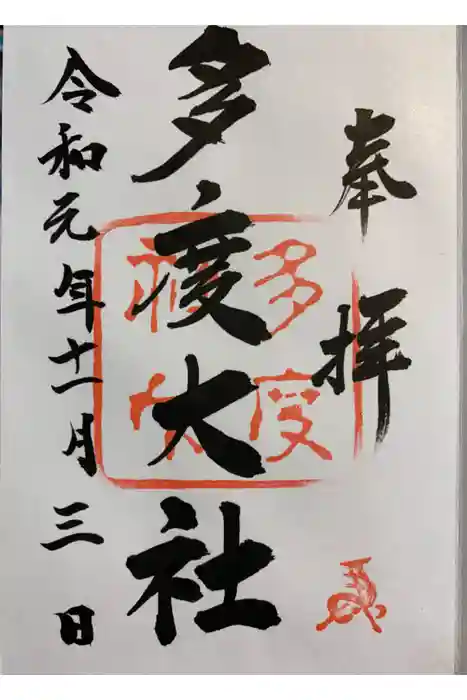 奉拝
多度大社
多度
令和元年十一月三日